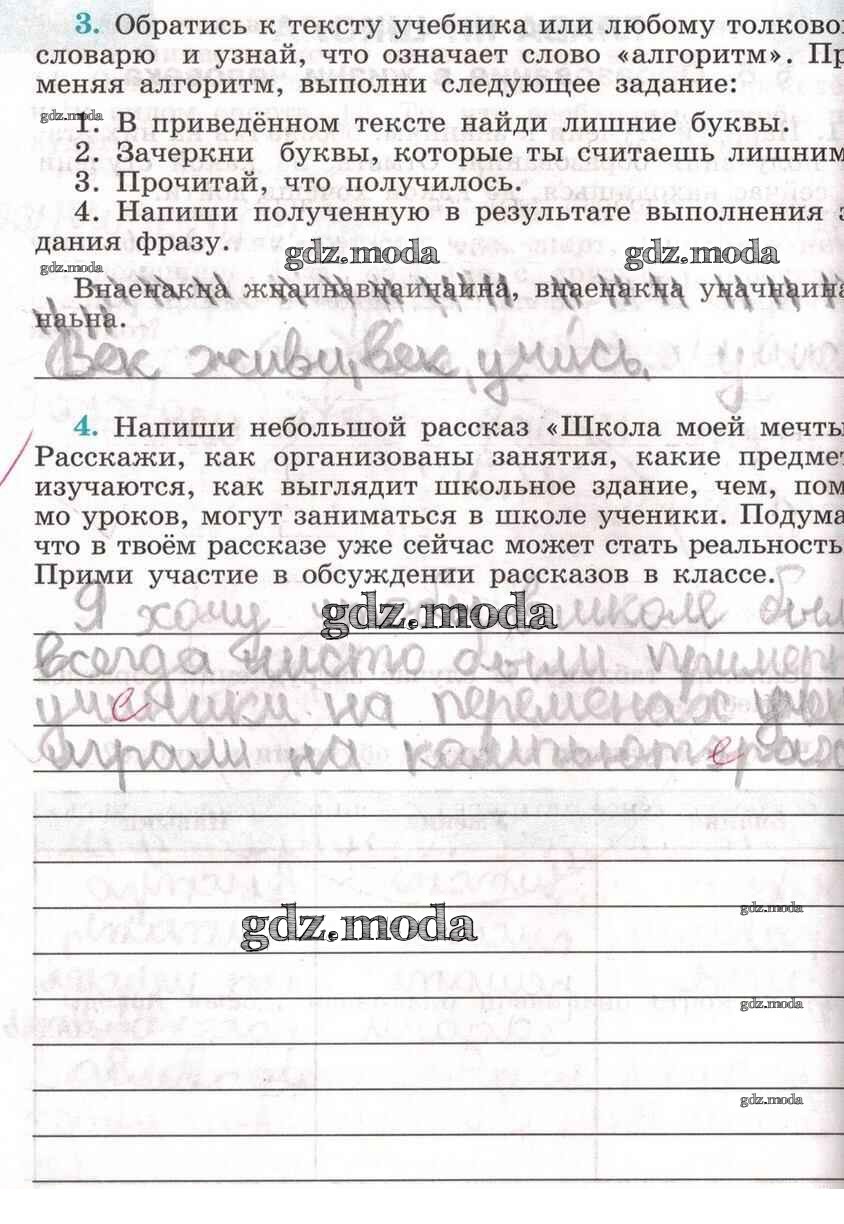 3. Обратись к тексту учебника или любому толково
словарю и узнай, что означает слово «алгоритм». Пр
меняя алгоритм, выполни следующее задание:
gdz.moda
1. В приведённом тексте найди лишние буквы.
2. Зачеркни буквы, которые ты считаешь лишним
3. Прочитай, что получилось.
4. Напиши полученную в результате выполнения з
дания фразу.
gdz.moda gdz.moda
gdz.moda
Внаенакна жнаинавнаинаина, внаенакна уначнаина
наьна.
Век живи, век учись.
4. Напиши небольшой рассказ «Школа моей мечты
Расскажи, как организованы занятия, какие предмет
изучаются, как выглядит школьное здание, чем, пом
мо уроков, могут заниматься в школе ученики. Подума
что в твоём рассказе уже сейчас может стать реальность
Прими участие в обсуждении рассказов в классе.
Я хочу чтобы в школе был
gdz.moda
всегда чисто были пример
ученики на переменах учен
играли на компьютерах
gdz.moda
gdz.moda
gdz.moda
gdz.moda